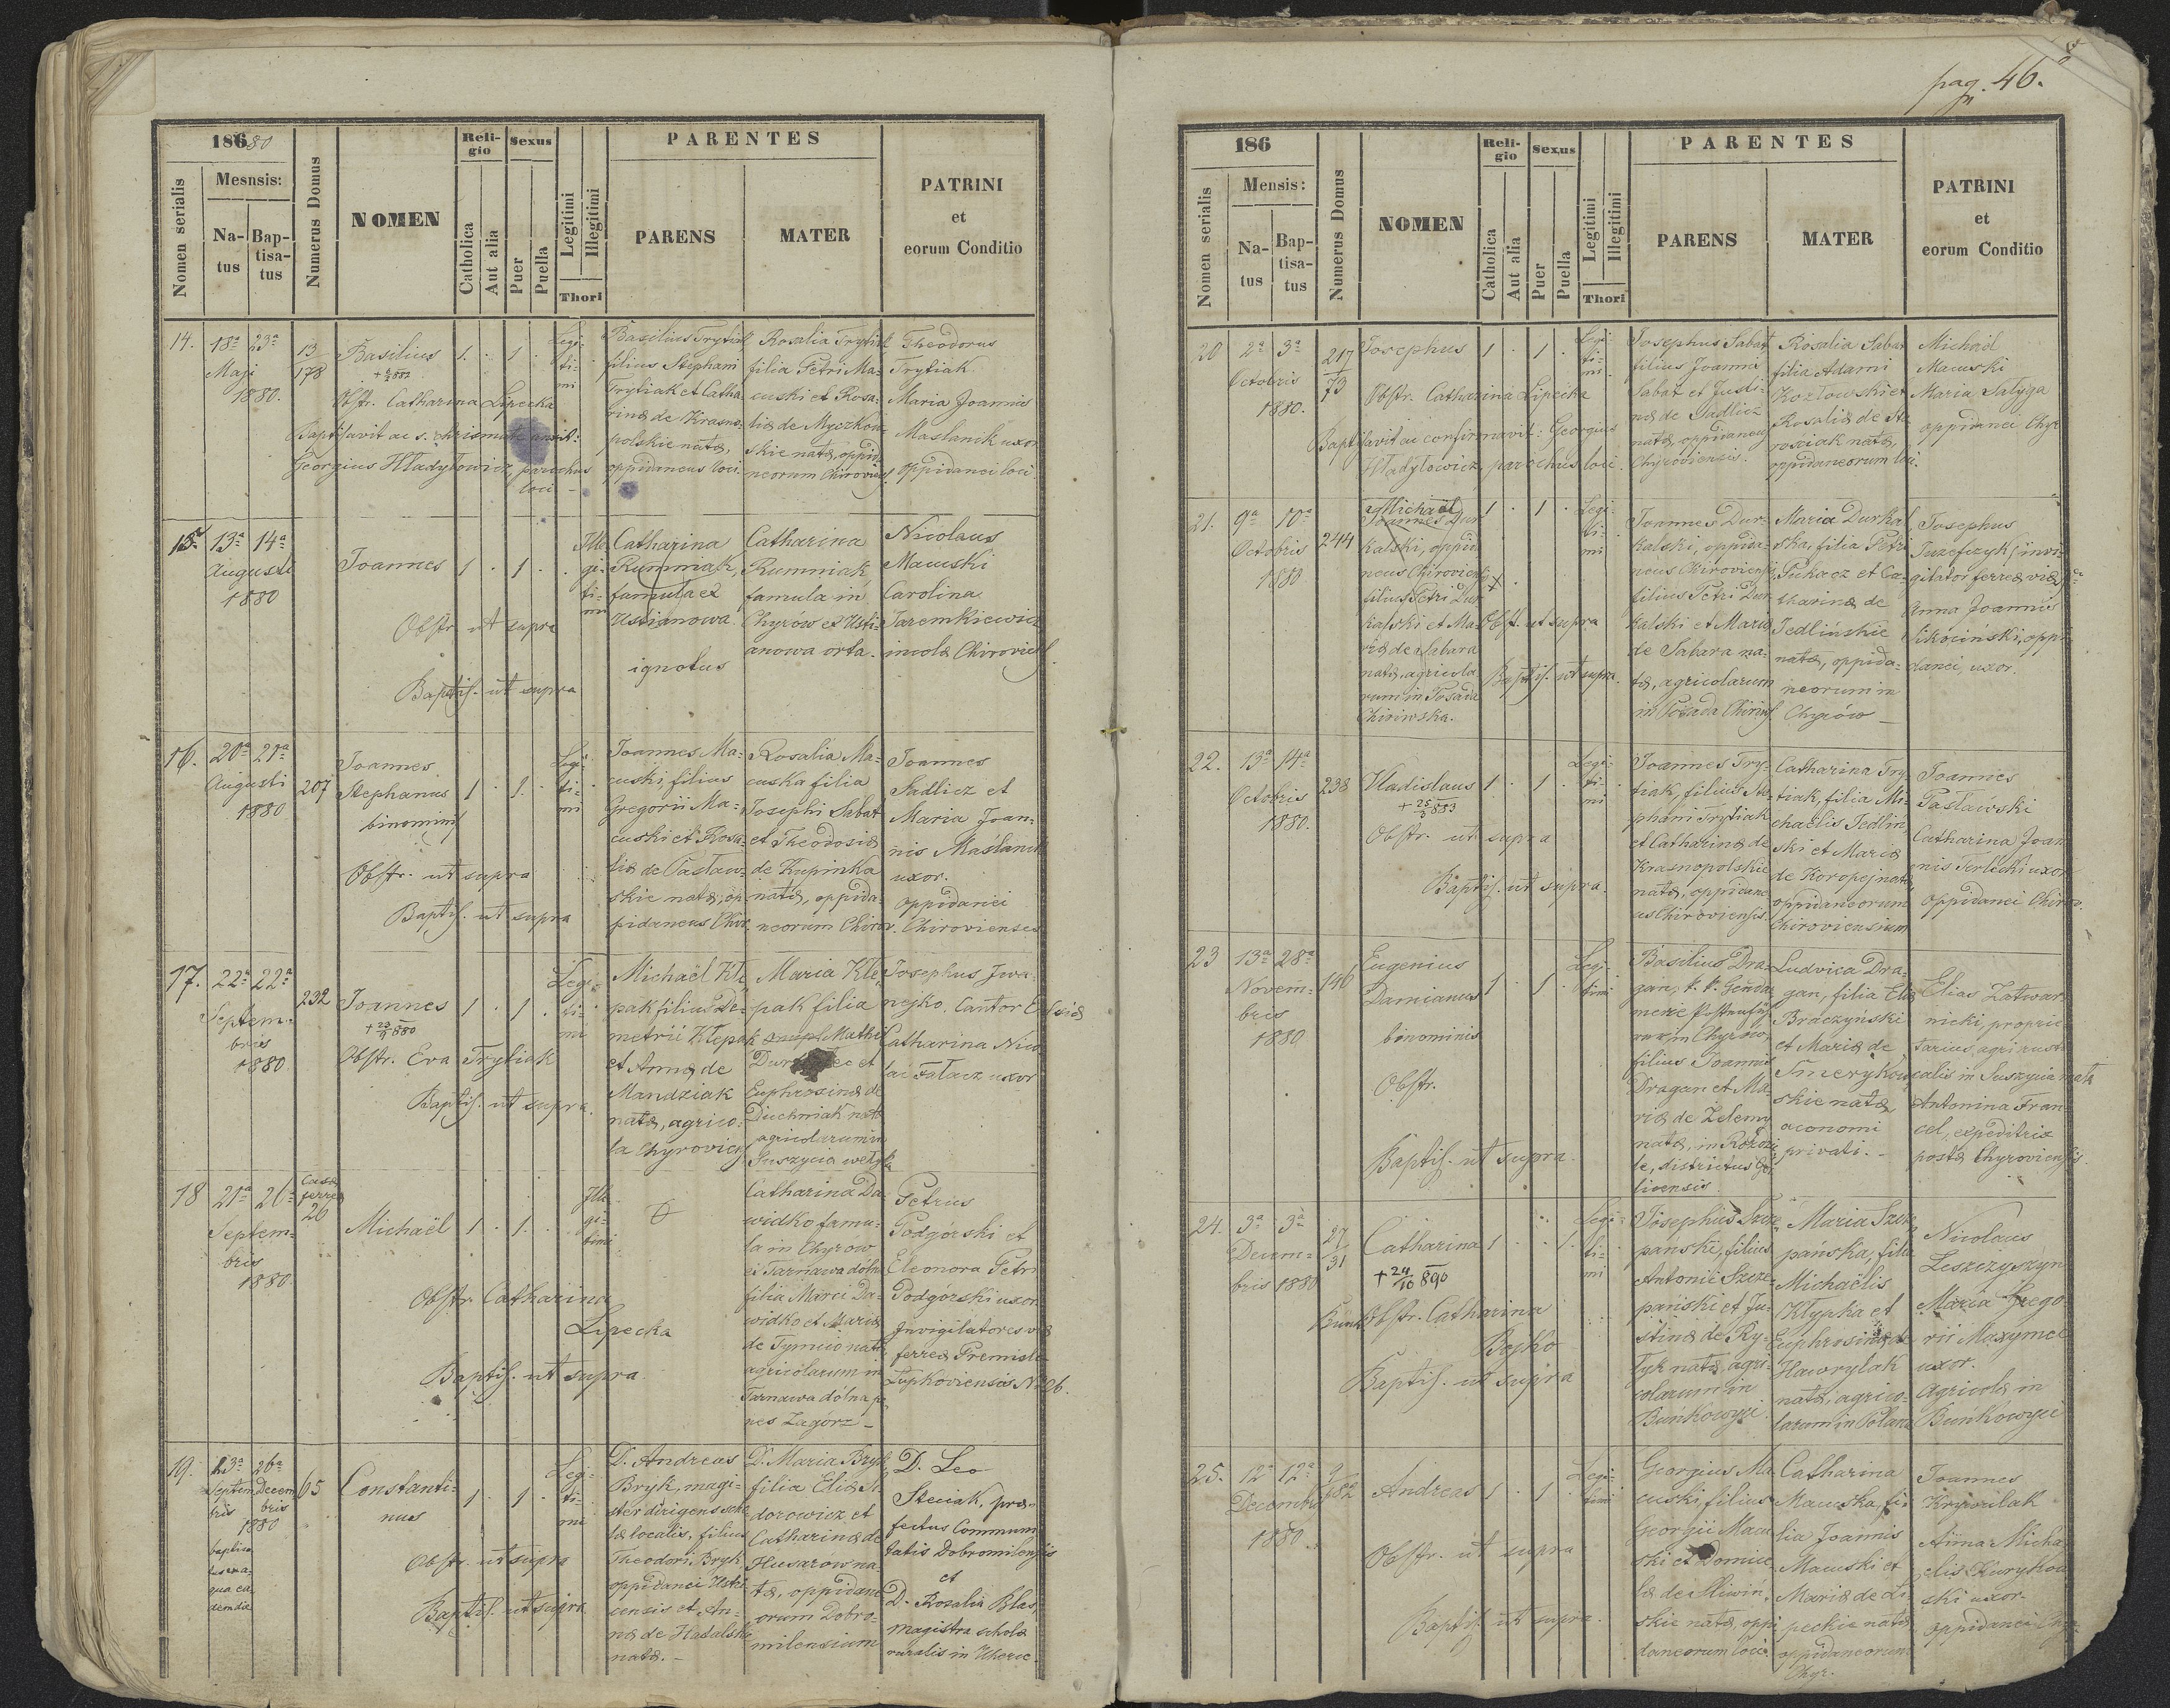 pag. 46.
18680
Mesnsis:
Nomen serialis
Na-
tus
Bap-
tisa-
tus
Numerus Domus
NOMEN
Reli-
gio
Catholica
Aut alia
Sexus
Puer
Puella
Legitimi
Illegitimi
Thori
PARENTES
PARENS
MATER
PATRINI
et
eorum Conditio
14.
18ª 23ª
Maji
1880.
13
178
Basilius
1 . 1 .
Legi-
ti-
mi
Obstr. Catharina Lipecka
Baptisavit ac s. chrismate unxit:
Georgius Hładyłowicz, parochus
loci
Basilius Trytiak
filius Stephani
Trytiak et Catha
rinæ de Krasno-
polskie natæ,
oppidaneus loci.
Rosalia Trytiak
filia Petri Ma-
cuski et Rosa-
liæ de Myczkow
skie natæ, oppid
neorum Chirovien
Theodorus
Trytiak
Maria Joannis
Maslanik uxor
oppidanei loci.
15.
13ª 14ª
Augusti
1880
Joannes
1 . 1 .
Ille
gi-
ti-
mi
Obstr. ut supra
Baptis. ut supra
Catharina
Rumniak,
famula ex
Ustianowa.
ignotus
Catharina
Rumniak
famula in
Chyrów ex Usti-
anowa orta.
Nicolaus
Macuski
Carolina
Jaremkiewicz
incolæ Chirovien
16.
20ª 21ª
Augusti
1880
207
Joannes
Stephanus
binominis
1 . 1 .
Legi-
ti-
mi
Obstr. ut supra
Baptis. ut supra
Joannes Ma-
cuski filius
Gregorii Ma-
cuski et Rosa-
liæ de Pasław-
skie natæ, op-
pidaneus Chir.
Rosalia Ma-
cuska filia
Josephi Sabat
et Theodosiæ
de Kupinka
natæ, oppida-
neorum Chirov.
Joannes
Sadlicz et
Maria Joan-
nis Maślanik
uxor.
oppidanei
Chirovienses
17.
22ª 22ª
Septem-
bris
1880
232
Joannes
+ 23/9 880
1 . 1 .
Legi-
ti-
mi
Obstr. Eva Trytiak
Baptis. ut supra.
Michaël Kłe
pak filius De-
metrii Kłepak
et Annæ de
Mandziak
natæ, agrico-
la Chyrovien
Maria Kłe
pak filia
Mathei
et
Euphrosinæ de
Duchniak nat
agricolarum in
Suszycia wełyka
Josephus Iwa-
nejko. Cantor Eclsiæ
Catharina Nico
lai Fałacz uxor
18
21ª 26ª
Septem-
bris
1880.
Casa
ferrea
26
Michaël
1 . 1 .
Ille
gi-
timi
Obstr. Catharina
Lipecka
Baptis. ut supra
Catharina Da
widko famu-
la in Chyrow
ex Tarnawa dólna
filia Marci Da-
widko et Mariæ
natæ
agricolarum in
Tarnawa dólna pe
nes Zagórz
Petrus
Podgórski et
Eleonora Petri
Podgórski uxor.
Invigilatores viæ
ferreæ Premisle
Łupkoviensis N 26.
19.
23ª 26ª
Septem Decem
bris bris
1880
65
Constanti-
nus
1 . 1 .
Legi-
ti-
mi
Obstr. ut supra
Baptis. ut supra
D. Andreas
Bryk, magi-
ster dirigens scho
læ localis, filius
Theodori Bryk
oppidanei Ustri
censis et An-
næ de Hadalskie
natæ.
D. Maria Bryk
filia Eliæ Si
dorowicz et
Catharinæ de
Husarow na-
tæ, oppidane
orum Dobro-
milensium
D. Leo
Steciak, præ-
fectus Commun
tatis Dobromilensis
et
D. Rosalia Blas,
magistra scholæ
ruralis in Uherce.
186
Mensis:
Nomen serialis
Na-
tus
Bap-
tisa-
tus
Numerus Domus
NOMEN
Reli-
gio
Catholica
Aut alia
Sexus
Puer
Puella
Legitimi
Illegitimi
Thori
PARENTES
PARENS
MATER
PATRINI
et
eorum Conditio
20
2ª 3ª
Octobris
1880.
217
79
Josephus
1 . 1 .
Legi-
ti-
mi
Obstr. Catharina Lipecka
Baptisavit ac confirmavit: Georgius
Hładyłowicz, parochus loci.
Josephus Sabat
filius Joannis
Sabat et Justi-
næ de Sadlicz
natæ, oppidaneus
Chyroviensis.
Rosalia Sabat
filia Adami
Kozłowski et
Rosaliæ de Sta
rosciak natæ,
oppidaneorum loci.
Michaël
Macuski
Maria Sałyga
oppidanei Chyr
21.
9ª 10ª
Octobris
1880
244
Michaël
Joannes Dur
kalski, oppida
neus Chiroviensis
filius Petri Dur
kalski et Ma-
riæ de Sabara
natæ, agricola
rum in Posada
Chiriwska.
1 . 1 .
Legi-
ti-
mi
Obst. ut supra
Baptis. ut supra.
Joannes Dur-
kalski, oppida-
neus Chiroviensis
filius Petri Dur
kalski et Mariæ
de Sabara na-
tæ, agricolarum
in Posada Chirivs
Maria Durkal
ska, filia Petri
Pukacz et Ca-
tharinæ de
Jedlińskie
natæ, oppida-
neorum in
Chyrów
Josephus
Juzefczyk, invi-
gilator ferreæ viæ, et
Anna Joannis
Sikociński, oppi
danei, uxor.
22.
13ª 14ª
Octobris
1880.
238
Vladislaus
+ 25/3 883
1 . 1 .
Legi-
ti-
mi
Obstr. ut supra
Baptis. ut supra.
Joannes Try-
tiak, filius Ste-
phani Trytiak
et Catharinæ de
Krasnopolskie
natæ, oppidane
us Chiroviensis.
Catharina Try-
tiak, filia Mi-
chaëlis Jedlin
ski et Mariæ
de Koropej natæ,
oppidaneorum
Chiroviensium
Joannes
Pasławski
Catharina Joan
nis Terlecki uxor
oppidanei Chirov.
23
13ª 28ª
Novem-
bris
1880
146
Eugenius
Damianus
binominis
1 . 1 .
Legi-
timi
Obstr.
Baptis. ut supra.
Basilius Dra-
gan, k. k. Gendar
merie
in Chyrów,
filius Joannis
Dragan et Ma-
riæ de Zelemy
natæ, in
le, districtus Go
licensis.
Ludvica Dra-
gan, filia Eliæ
Braczyński
et Mariæ de
Smerykow
skie natæ
œconomi
privati.
Elias Zatwar
nicki, proprie
tarius agri rusti
calis in Suszycia mała
Antonina Fran
cel, expeditrix
postæ Chyroviensis
24.
3ª 3ª
Decem-
bris 1880
27
31
Catharina
+ 24/10 890
1 . . 1.
Legi-
ti-
mi
Obstr. Catharina
Bojko
Baptis. ut supra
Josephus Szcze
pański, filius
Antonii Szcze-
pański et Ju-
stinæ de Ry-
tyk natæ, agri-
colarum in
Buńkowyci
Maria Szcze
pańska, filia
Michaëlis
Kłypka et
Euphrosinæ de
Hawrylak
natæ, agrico-
larum in Polana
Nicolaus
Leszczyszyn
Maria Grego-
rii Maxymec
uxor.
Agricolæ in
Buńkowyci
25.
12ª 12ª
Decembris
1880
Andreas
1 . 1 .
Legi-
timi
Obstr. ut supra
Baptis. ut supra.
Georgius Ma
cuski, filius
Georgii Macu
ski et Domice
læ de Sliwin
skie natæ, oppi
daneorum loci.
Catharina
Macuska, fi-
lia Joannis
Macuski et
Mariæ de Li
peckie natæ
oppidaneorum
Chyr.
Joannes
Krywulak
Anna Micha
ëlis Kurytkow
ski uxor
oppidanei Chyr